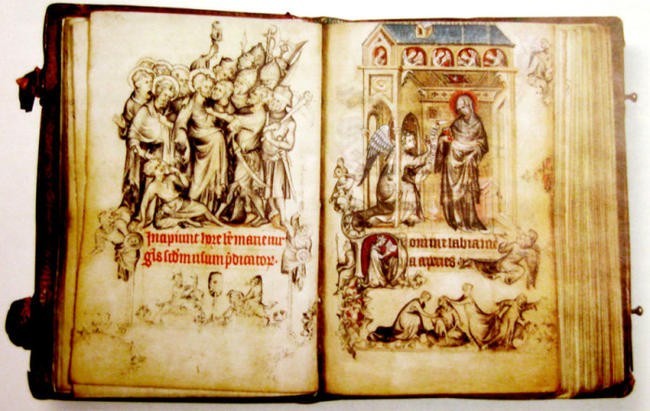 Incipiunt hore bẽ marie uir
gis scdm usum p̃dicatoꝝ.
Domine labia me
a aperies.